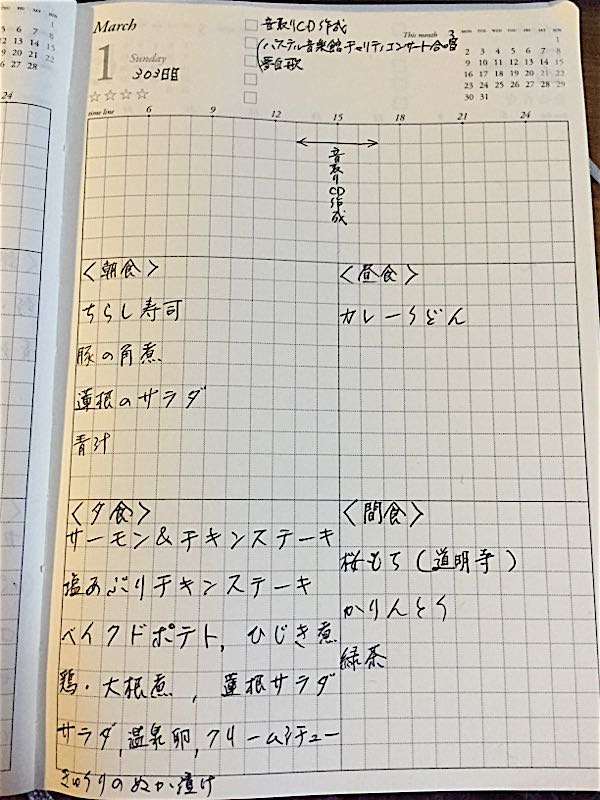 March
1 Sunday
303日目
☆☆☆☆
音取りCD作成
(パステル音楽館チャリティコンサート合唱
夢白歌
This month 3
MON TUE WED THU FRI SAT SUN
1
2 3 4 5 6 7 8
9 10 11 12 13 14 15
16 17 18 19 20 21 22
23 24 25 26 27 28 29
30 31
24
time line 6 9 12 15 18 21 24
音取りCD作成
<朝食>
ちらし寿司
豚の角煮
蓮根のサラダ
青汁
<昼食>
カレーうどん
<夕食>
サーモン&チキンステーキ
塩あぶりチキンステーキ
ベイクドポテト, ひじき煮
鶏・大根煮, 蓮根サラダ
サラダ,温泉卵,クリームシチュー
きゅうりのぬか漬け
<間食>
桜もち(道明寺)
かりんとう
緑茶